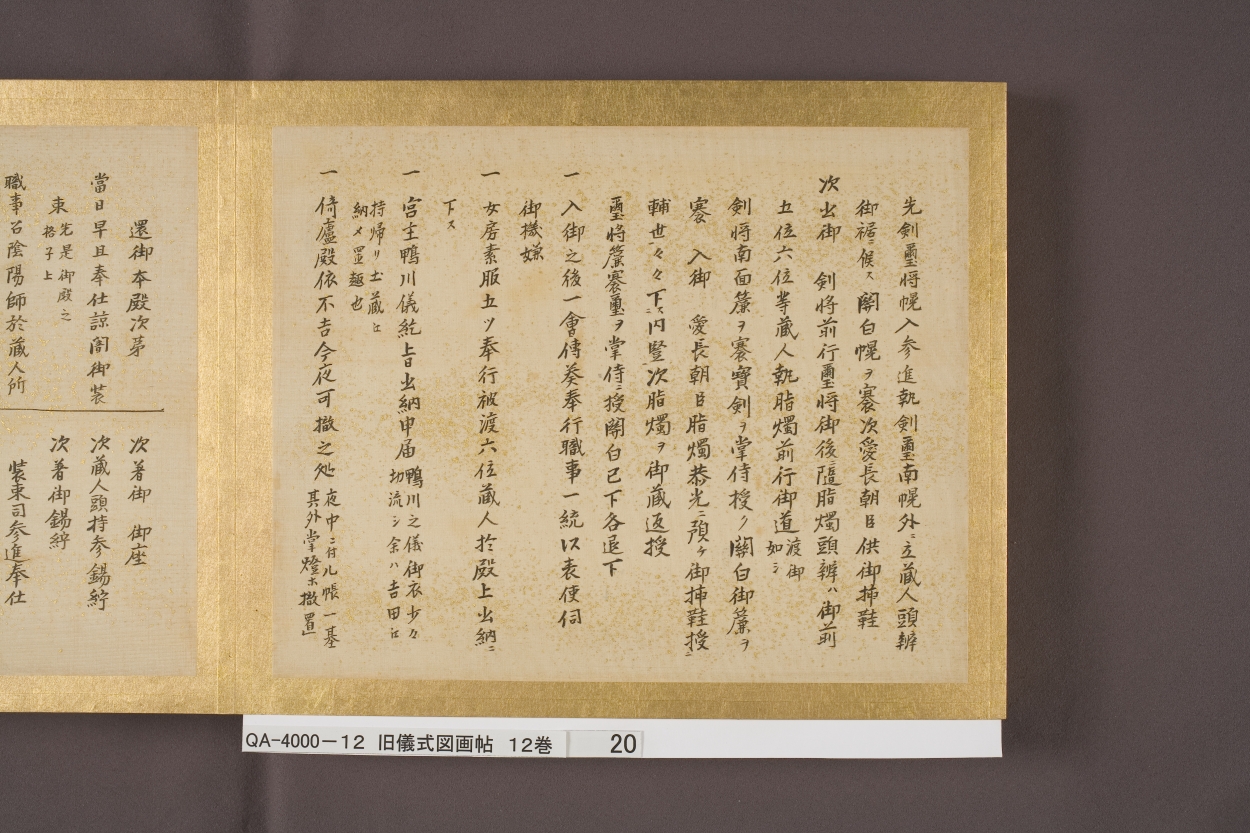 先剣璽将幌入参進執剣璽南幌外ニ立蔵人頭辨
御裾ニ候ス関白幌ヲ褰次愛長朝臣供御挿鞋
次出御　剣将前行璽将御後隨脂燭頭辨ハ御前
五位六位等蔵人執脂燭前行御道渡御如シ
剣将南面簾ヲ褰寶剣ヲ掌侍授ク關白御簾ヲ
褰　入御　愛長朝臣脂燭恭光ニ預ケ御挿鞋授ニ
輔世々々下ス内豎次脂燭ヲ御蔵返授
璽将簾褰璽ヲ掌侍ニ授関白已下各退下
一 入御之後一會傳奏奉行職事一統以表使伺
御機嫌
一 女房素服五ツ奉行被渡六位蔵人於殿上出納ニ
下ス
一 宮主鴨川儀訖上旨出納申届鴨川之儀御衣少々
切流シ余ハ吉田江
持帰リ土蔵江
納メ置趣也
一 倚廬殿依不吉今夜可撤之処夜中ニ付几帳一基
其外掌燈ホ撤置」
還御本殿次第
當日早旦奉仕諒闇御装
束先是御殿之
格子上
職事召陰陽師於蔵人所
次著御　御座
次蔵人頭持参錫紵
次著御錫紵
装束司参進奉仕
QA-4000-12 旧儀式図画帖 12巻 20